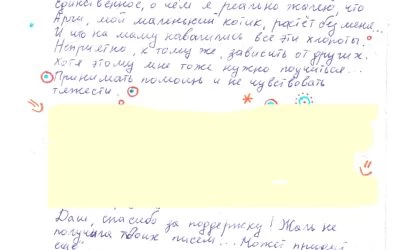 единственное, о чем я реально жалею, что
Арги, мой маленький котик, растёт без меня...
И что на маму навалились все эти хлопоты.
Неприятно, к тому же, зависить от других.
Хотя этому мне тоже нужно поучиться...
Принимать помощь и не чувствовать
тяжести.
Даш, спасибо за поддержку! Жаль не
получила твоих писем... Может придут